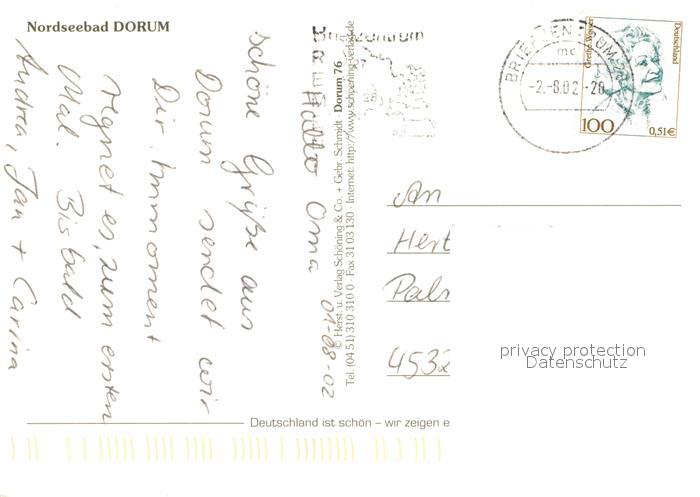 Nordseebad DORUM
Hallo Oma 01-08-02
schöne Grüße aus
Dorum sendet wir
Dir. Immoment
regnet es, zum ersten
Mal. Bis bald
Andrea, Jan + Carina
© Herst. u. Verlag Schöning & Co. + Gebr. Schmidt · Dorum 76
Tel. (04 51) 310 310 0 · Fax 31 03 130 · Internet: http://www.schoening-verlag.de
Briefzentrum
BRIEFZENTRUM
mc
-2.-8.02.-20
Grethe Weiser
Deutschland
100
0,51€
An
Hert
Palr
4532
privacy protection
Datenschutz
Deutschland ist schön – wir zeigen e